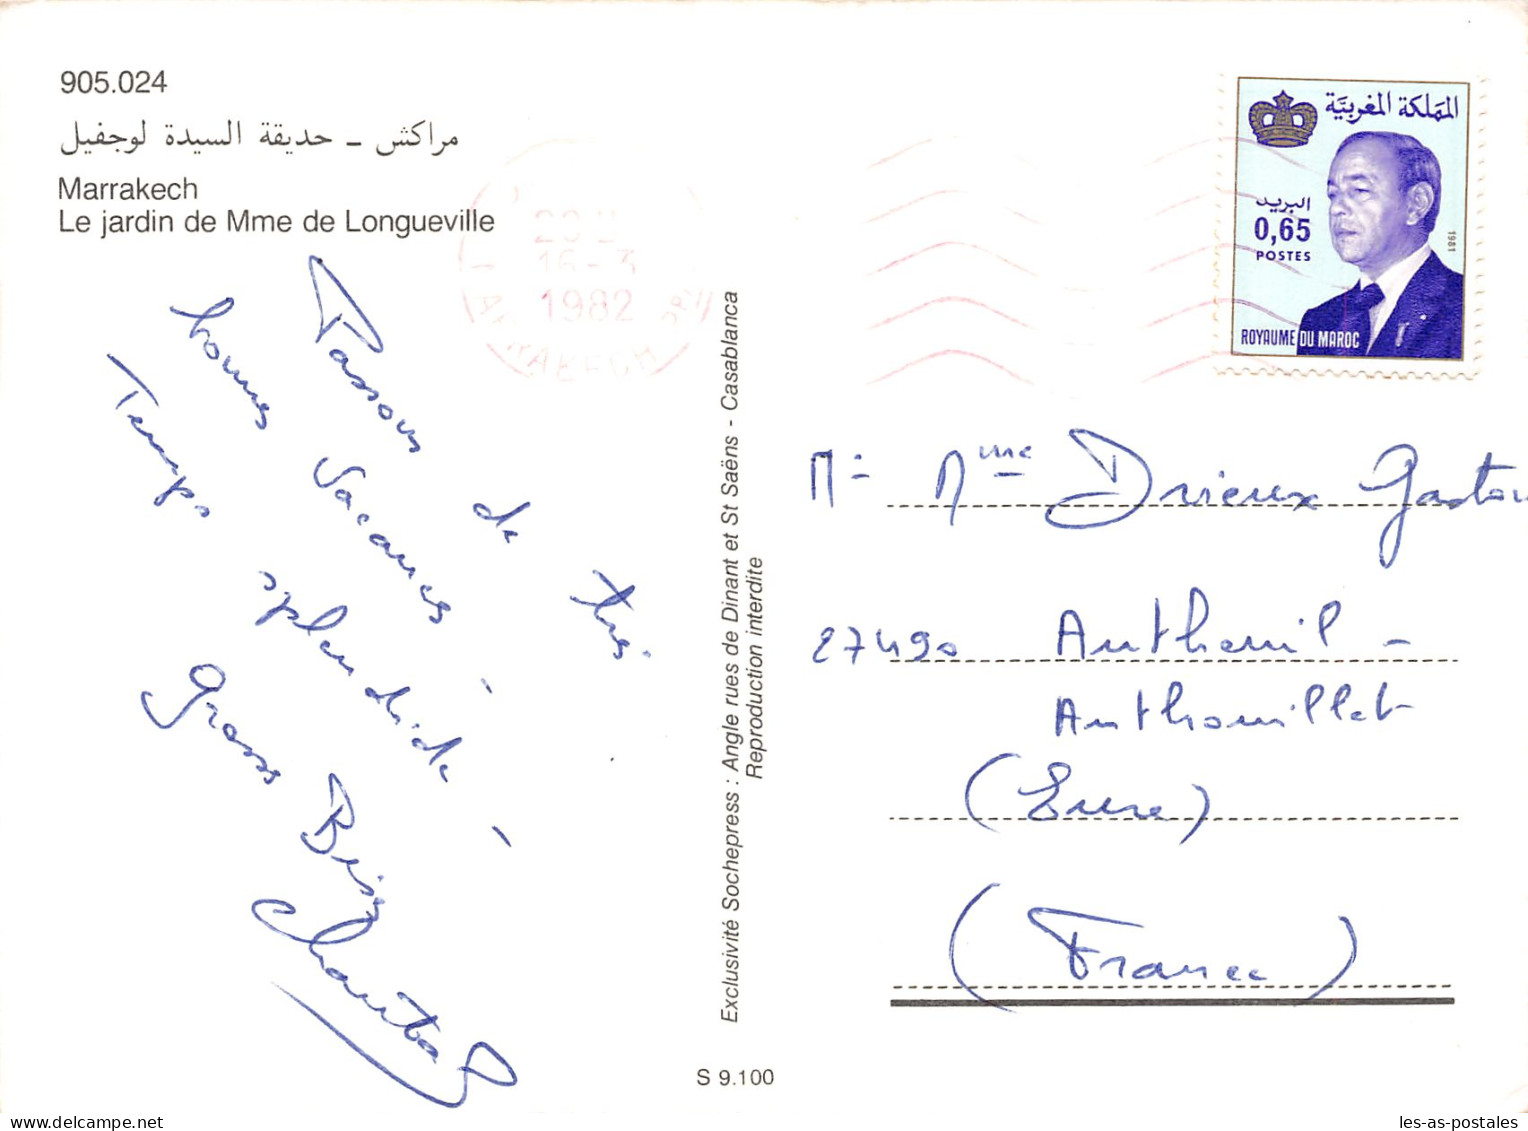 905.024
مراكش – حديقة السيدة لوجفيل
Marrakech
Le jardin de Mme de Longueville
1982
المملكة المغربية
البريد
0,65
POSTES
1981
ROYAUME DU MAROC
Passons de très
bonnes vacances -
Temps splendide -
Gross Bises
Chantal
Exclusivité Sochepress : Angle rues de Dinant et St Saëns - Casablanca
Reproduction interdite
M - Mme Drieux Gaston
27490 Autheuil -
Authouillet
(Eure)
(France)
S 9.100
les-as-postales